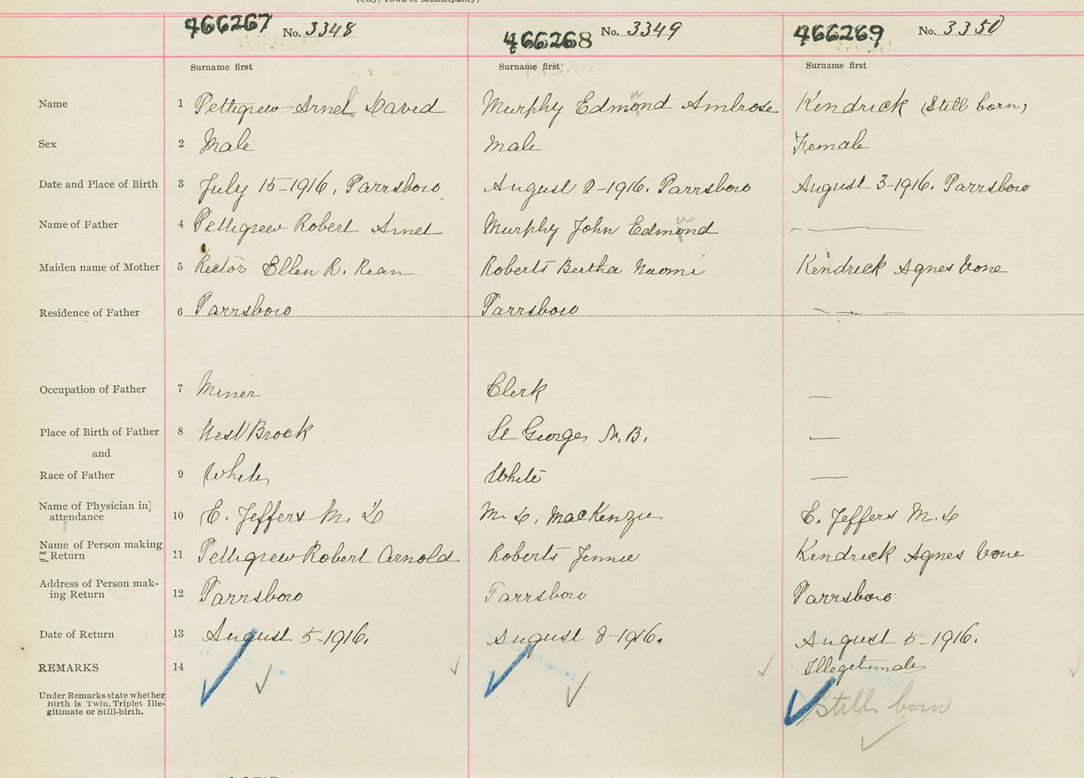 (City, Town or Municipality)
466267 No. 3348 466268 No. 3349 466269 No. 3350
Surname first Surname first Surname first
Name 1 Pettigrew Arnel David Murphy Edmond Ambrose Kendrick (Still born)
Sex 2 Male Male Female
Date and Place of Birth 3 July 15-1916, Parrsboro August 2-1916. Parrsboro August 3-1916. Parrsboro
Name of Father 4 Pettigrew Robert Arnel Murphy John Edmond
Maiden name of Mother 5 Rector Ellen R. Roberts Bertha Naomi Kendrick Agnes Vone
Residence of Father 6 Parrsboro Parrsboro
Occupation of Father 7 Miner Clerk —
Place of Birth of Father 8 West Brook St Georges N.B. —
and
Race of Father 9 White White —
Name of Physician in
attendance 10 E. Jeffers M. D M. D. MacKenzie E. Jeffers M. D
Name of Person making
Return 11 Pettigrew Robert Arnold Roberts Jennie Kendrick Agnes Vone
Address of Person mak-
ing Return 12 Parrsboro Parrsboro Parrsboro
Date of Return 13 August 5-1916. August 8-1916. August 5-1916.
REMARKS 14 Illegitimate
Under Remarks state whether
Birth is Twin, Triplet, Ille-
gitimate or Still-birth.
Still born